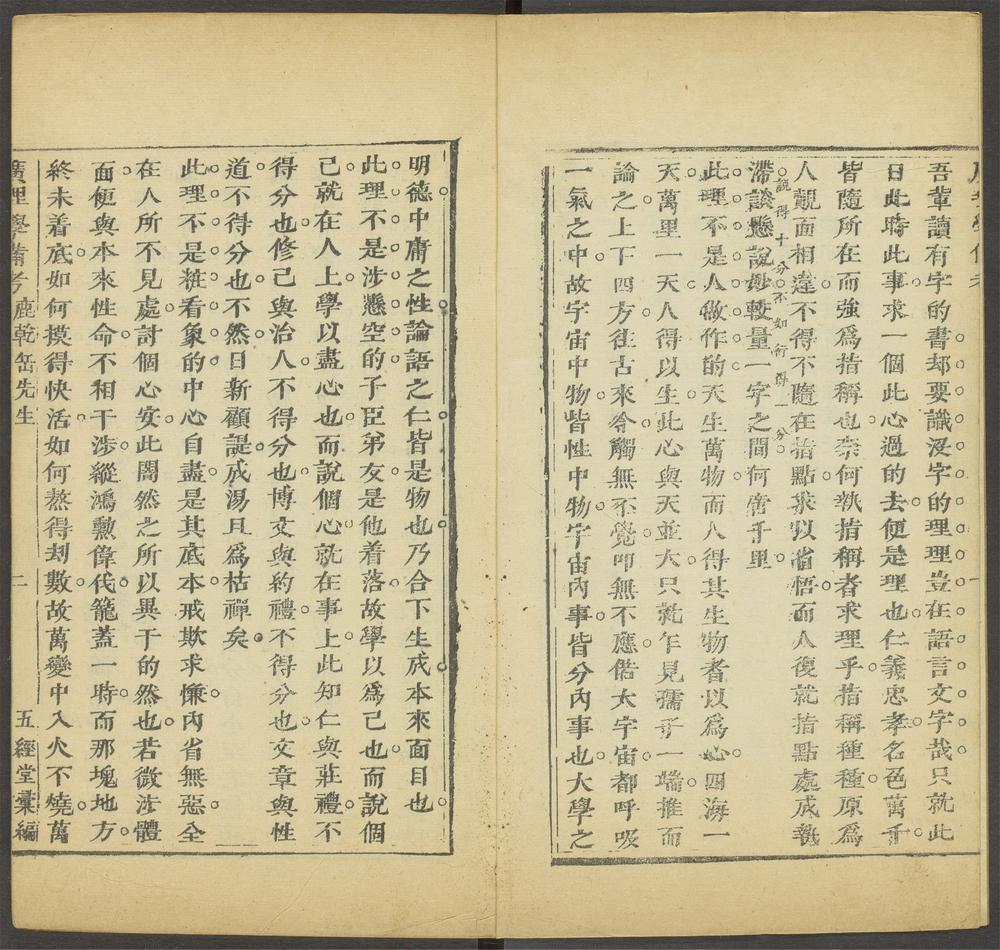 吾輩讀有字的書却要識沒字的理理豈在語言文字哉只就此
日此時此事求一個此心過的去便是理也仁義忠孝名色萬千
皆隨所在而強爲指稱也奈何執指稱者求理乎指稱種種原爲
人覿面相違不得不隨在指點求以省悟而人復就指點處成執
滯談懸說妙較量一字之間何啻千里
說得十分不如行得一分
此理不是人做作的天生萬物而人得其生物者以爲心四海一
天萬里一天人得以生此心與天並大只就乍見孺子一端推而
論之上下四方往古來今觸無不覺叩無不應偌大宇宙都呼吸
一氣之中故宇宙中物皆性中物宇宙內事皆分內事也大學之
明德中庸之性論語之仁皆是物也乃合下生成本來面目也
此理不是涉懸空的子臣弟友是他着落故學以爲己也而說個
己就在人上學以盡心也而說個心就在事上此知仁與莊禮不
得分也修己與治人不得分也博文與約禮不得分也文章與性
道不得分也不然日新顧諟成湯且爲枯禪矣
此理不是粧看象的中心自盡是其底本戒欺求慊內省無惡全
在人所不見處討個心安此闇然之所以異于的然也若微涉體
面便與本來性命不相干涉縱鴻勳偉伐籠蓋一時而那塊地方
終未着底如何摸得快活如何熬得刼數故萬變中入火不燒萬
廣理學備考 鹿乾岳先生 二 五經堂彙編